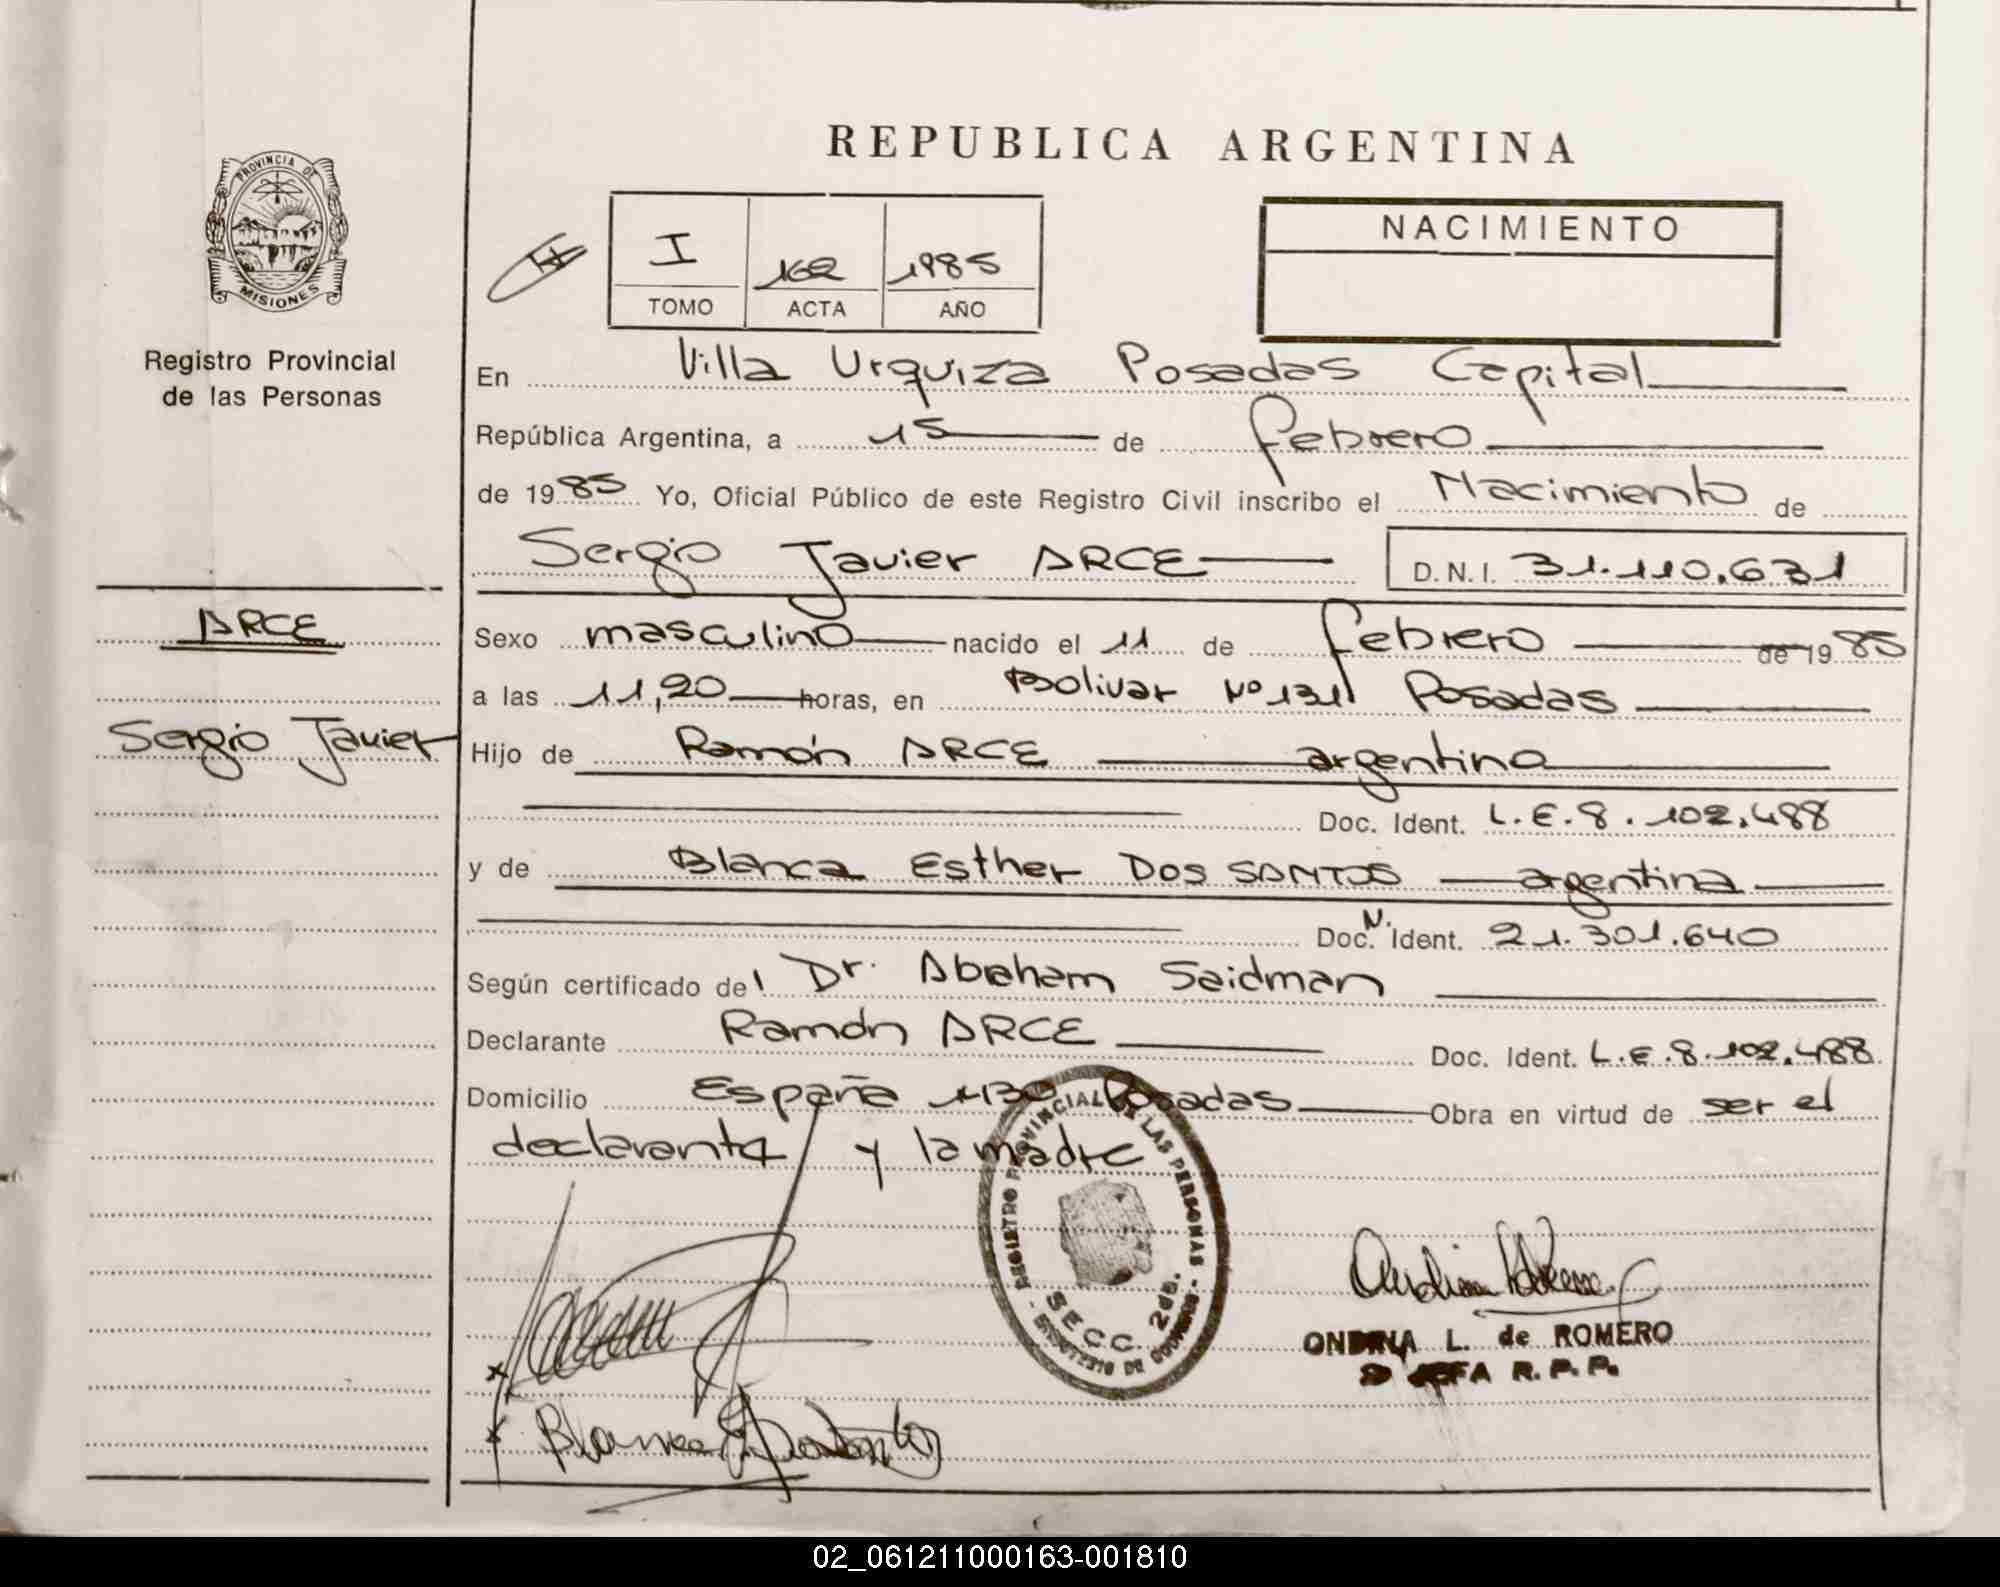 REPUBLICA ARGENTINA
PROVINCIA DE
MISIONES
Registro Provincial
de las Personas
I 162 1985
TOMO ACTA AÑO
NACIMIENTO
En Villa Urquiza Posadas Capital
República Argentina, a 15 de febrero
de 1985 Yo, Oficial Público de este Registro Civil inscribo el Nacimiento de
Sergio Javier ARCE D.N.I. 31.110.631
ARCE
Sergio Javier
Sexo masculino nacido el 11 de febrero de 1985
a las 11,20 horas, en Bolivar Nº 131 Posadas
Hijo de Ramón ARCE argentino
Doc. Ident. L.E. 8.102.488
y de Blanca Esther DOS SANTOS argentina
Doc. N. Ident. 21.301.640
Según certificado del Dr. Abraham Saidman
Declarante Ramón ARCE Doc. Ident. L.E. 8.102.488
Domicilio España Posadas Obra en virtud de ser el
declarante y la madre
REGISTRO PROVINCIAL DE LAS PERSONAS
SECC. 2da.
MINISTERIO DE GOBIERNO
L. de ROMERO
JEFA R.P.P.
02_061211000163-001810